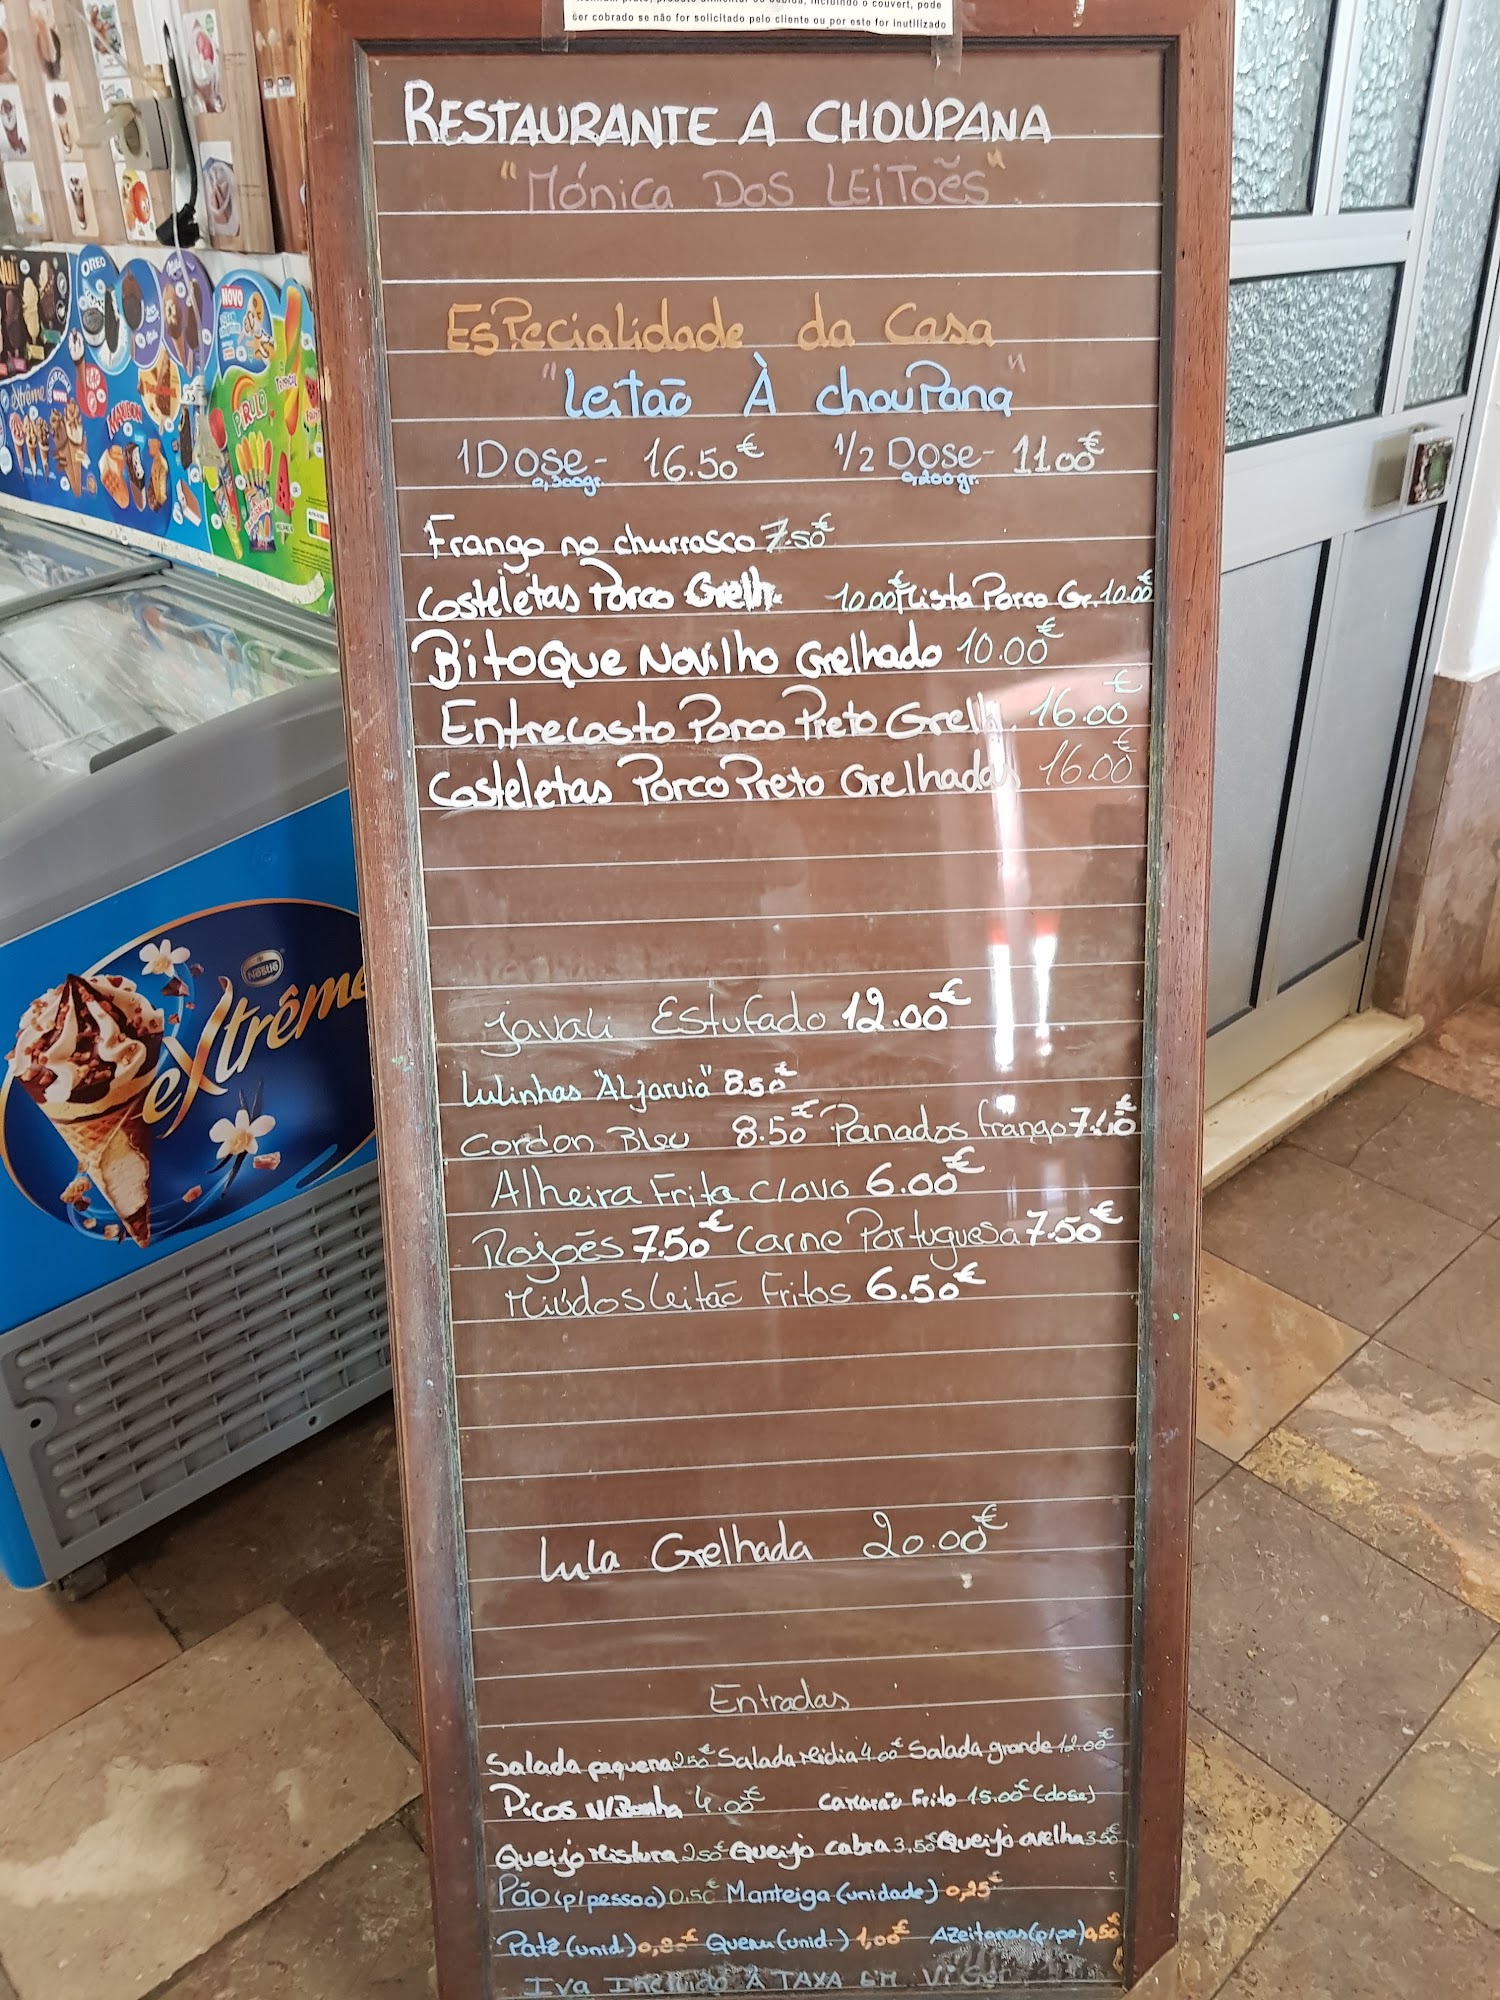 ser cobrado se não for solicitado pelo cliente ou por este for inutilizado
RESTAURANTE A CHOUPANA
"MÓNICA DOS LEITOẽS"
Especialidade da Casa
"Leitão À chouPana"
1 Dose- 16.50€ 1/2 Dose- 11.00€
0,300gr. 0,200gr.
Frango no churrasco 7.50€
Costeletas Porco Grelh. 10.00€ Mista Porco Gr. 10.00€
BitoQue Novilho Grelhado 10.00€
Entrecosto Porco Preto Grelh. 16.00€
Costeletas Porco Preto Grelhadas 16.00€
javali Estufado 12.00€
Lulinhas "ALjaruia" 8.50€
Cordon Bleu 8.50€ Panados frango
Alheira Frita C/ovo 6.00€
Rojoẽs 7.50€ Carne Portuguesa 7.50€
Miúdos Leitão Fritos 6.50€
Lula Grelhada 20.00€
Entradas
Salada pequena 2.50€ Salada Média 4.00€ Salada grande 12.00€
Picos 4.00€ Camarão Frito 15.00€ (dose)
Queijo Mistura 2.50 Queijo cabra 3,50€ Queijo ovelha 3.50
Pão (p/pessoa) 0.5€ Manteiga (unidade) 0,25€
Patê (unid.) 0,80€ (unid.) 1,00€ Azeitonas (p/pe) 0,50€
Iva Incluido À TAXA EM ViGor
NOVO
OREO
extrême
PIRULO
Nestlé
extrême